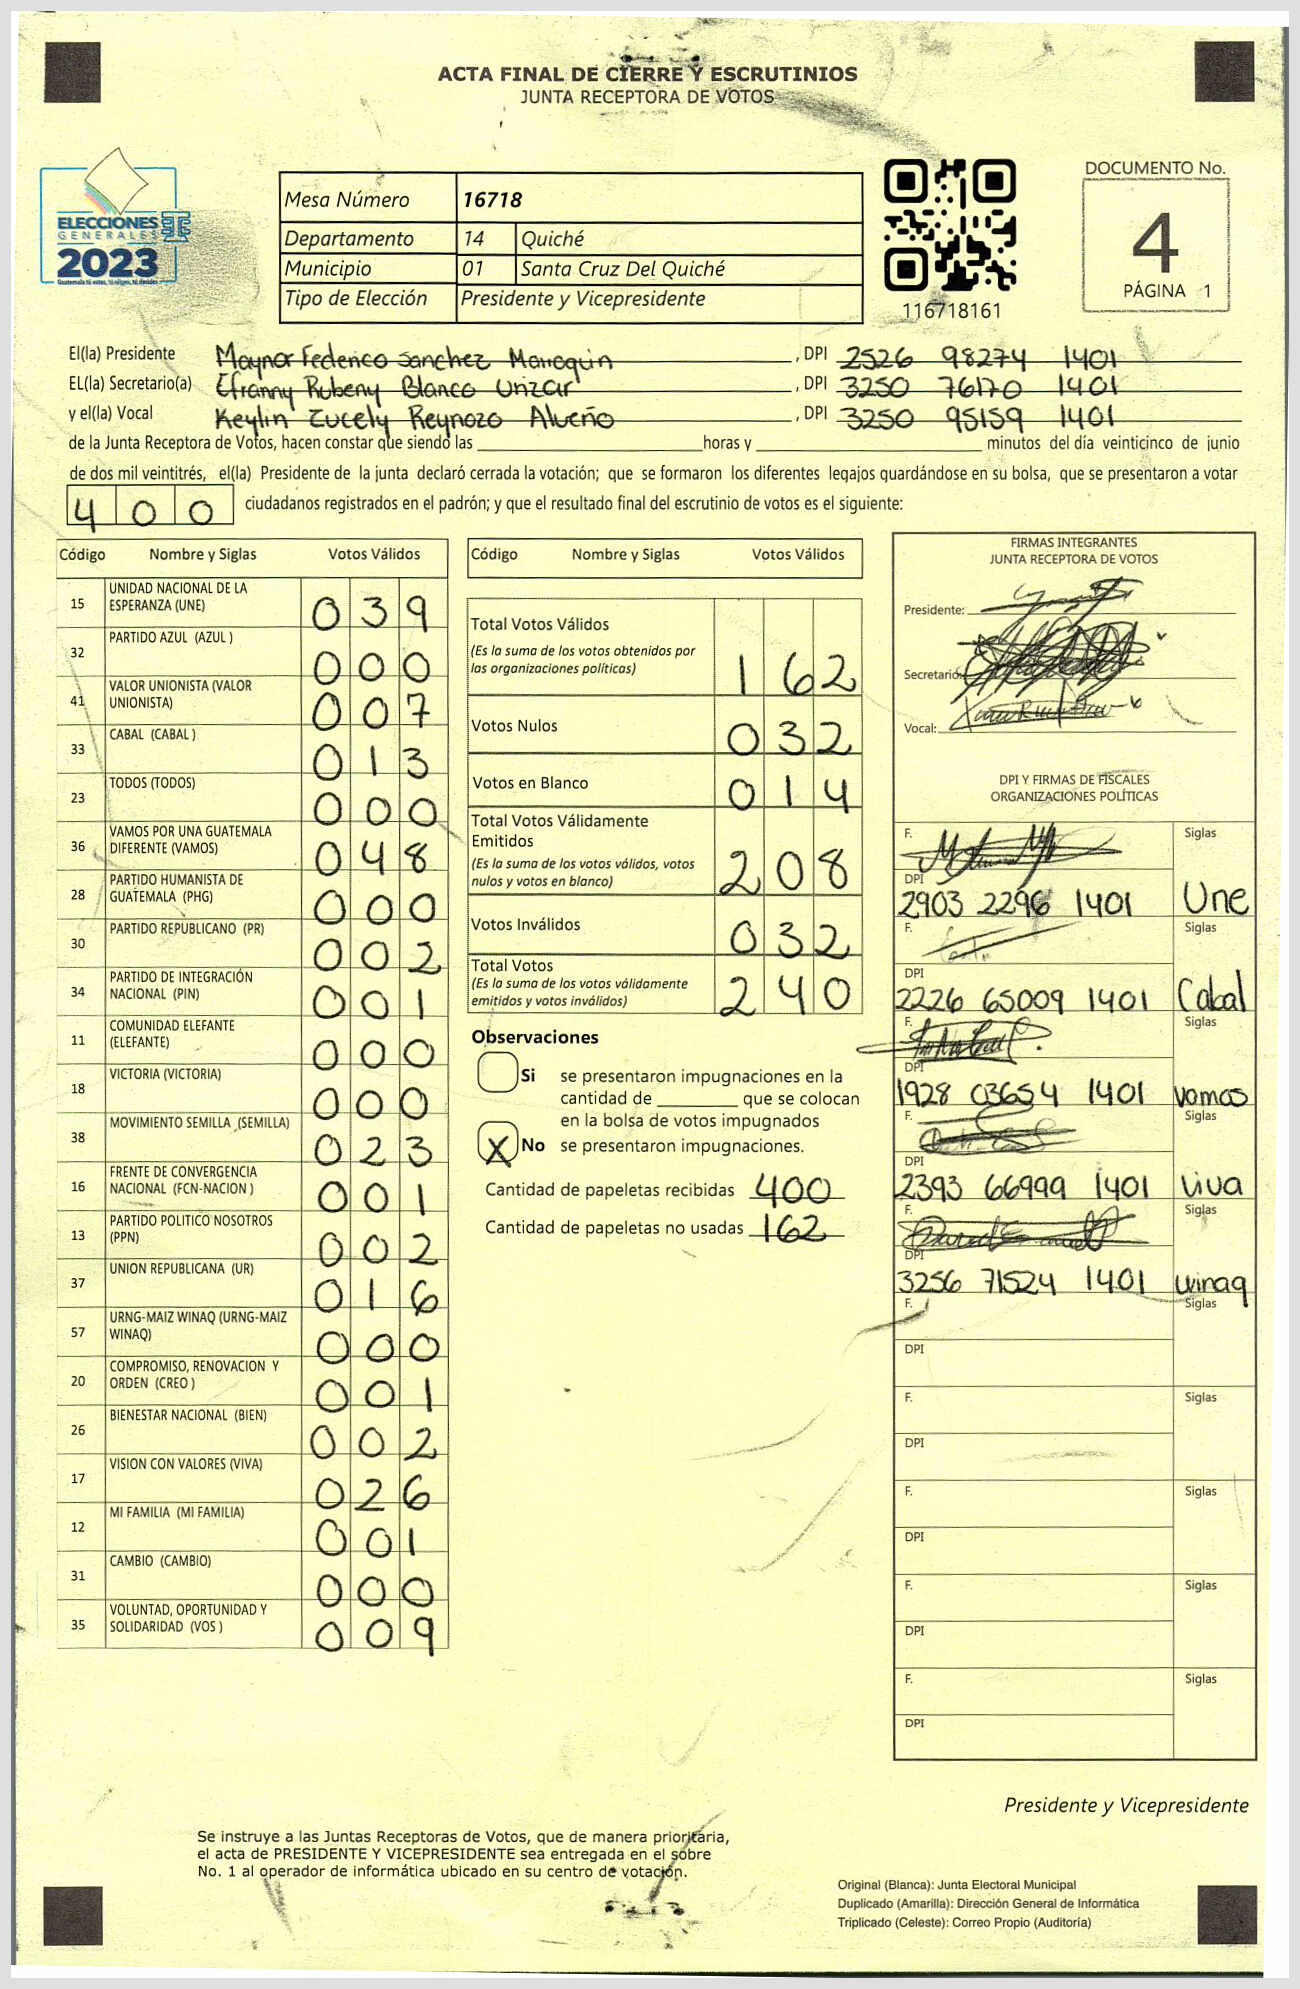 ACTA FINAL DE CIERRE Y ESCRUTINIOS
JUNTA RECEPTORA DE VOTOS
ELECCIONES
GENERALES
2023
Guatemala tú votas, tú eliges, tú decides
Mesa Número 16718
Departamento 14 Quiché
Municipio 01 Santa Cruz Del Quiché
Tipo de Elección Presidente y Vicepresidente
116718161
DOCUMENTO No.
4
PÁGINA 1
El(la) Presidente Maynor Federico Sanchez Marroquin , DPI 2526 98274 1401
EL(la) Secretario(a) Efranny Rubeny Blanco Urizar , DPI 3250 76170 1401
y el(la) Vocal Keylin Zucely Reynozo Alveño , DPI 3250 95159 1401
de la Junta Receptora de Votos, hacen constar que siendo las horas y minutos del día veinticinco de junio
de dos mil veintitrés, el(la) Presidente de la junta declaró cerrada la votación; que se formaron los diferentes legajos quardándose en su bolsa, que se presentaron a votar
400 ciudadanos registrados en el padrón; y que el resultado final del escrutinio de votos es el siguiente:
Código Nombre y Siglas Votos Válidos
15 UNIDAD NACIONAL DE LA ESPERANZA (UNE) 039
32 PARTIDO AZUL (AZUL ) 000
41 VALOR UNIONISTA (VALOR UNIONISTA) 007
33 CABAL (CABAL ) 013
23 TODOS (TODOS) 000
36 VAMOS POR UNA GUATEMALA DIFERENTE (VAMOS) 048
28 PARTIDO HUMANISTA DE GUATEMALA (PHG) 000
30 PARTIDO REPUBLICANO (PR) 002
34 PARTIDO DE INTEGRACIÓN NACIONAL (PIN) 001
11 COMUNIDAD ELEFANTE (ELEFANTE) 000
18 VICTORIA (VICTORIA) 000
38 MOVIMIENTO SEMILLA (SEMILLA) 023
16 FRENTE DE CONVERGENCIA NACIONAL (FCN-NACION ) 001
13 PARTIDO POLITICO NOSOTROS (PPN) 002
37 UNION REPUBLICANA (UR) 016
57 URNG-MAIZ WINAQ (URNG-MAIZ WINAQ) 000
20 COMPROMISO, RENOVACION Y ORDEN (CREO ) 001
26 BIENESTAR NACIONAL (BIEN) 002
17 VISION CON VALORES (VIVA) 026
12 MI FAMILIA (MI FAMILIA) 001
31 CAMBIO (CAMBIO) 000
35 VOLUNTAD, OPORTUNIDAD Y SOLIDARIDAD (VOS ) 009
Código Nombre y Siglas Votos Válidos
Total Votos Válidos 162
(Es la suma de los votos obtenidos por
las organizaciones políticas)
Votos Nulos 032
Votos en Blanco 014
Total Votos Válidamente
Emitidos 208
(Es la suma de los votos válidos, votos
nulos y votos en blanco)
Votos Inválidos 032
Total Votos 240
(Es la suma de los votos válidamente
emitidos y votos inválidos)
Observaciones
Si se presentaron impugnaciones en la
cantidad de que se colocan
en la bolsa de votos impugnados
X No se presentaron impugnaciones.
Cantidad de papeletas recibidas 400
Cantidad de papeletas no usadas 162
FIRMAS INTEGRANTES
JUNTA RECEPTORA DE VOTOS
Presidente:
Secretario:
Vocal:
DPI Y FIRMAS DE FISCALES
ORGANIZACIONES POLÍTICAS
F. Siglas
DPI
2903 2296 1401 Une
F. Siglas
DPI
2226 65009 1401 Cabal
F. Siglas
DPI
1928 03654 1401 vamos
F. Siglas
DPI
2393 66999 1401 viva
F. Siglas
DPI
3256 71524 1401 winaq
F. Siglas
DPI
F. Siglas
DPI
F. Siglas
DPI
F. Siglas
DPI
F. Siglas
DPI
Presidente y Vicepresidente
Se instruye a las Juntas Receptoras de Votos, que de manera prioritaria,
el acta de PRESIDENTE Y VICEPRESIDENTE sea entregada en el sobre
No. 1 al operador de informática ubicado en su centro de votación.
Original (Blanca): Junta Electoral Municipal
Duplicado (Amarilla): Dirección General de Informática
Triplicado (Celeste): Correo Propio (Auditoría)